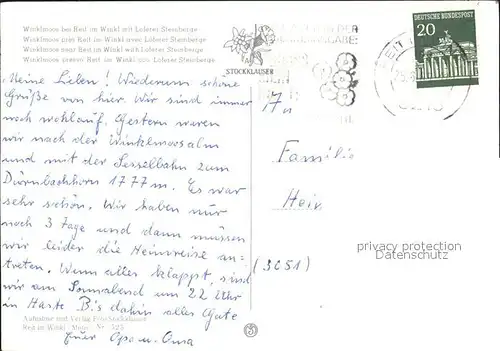 Winklmoos bei Reit im Winkl mit Loferer Steinberge
Winklmoos près Reit im Winkl avec Loferer Steinberge
Winklmoos near Reit im Winkl with Loferer Steinberge
Winklmoos presso Reit im Winkl con Loferer Steinberge
STOCKKLAUSER
DEUTSCHE BUNDESPOST
20
REIT IM
Meine Lieben! Wiederum schöne
Grüße von hier. Wir sind immer
noch wohlauf. Gestern waren
wir nach der Winklmoosalm
und mit der Sesselbahn zum
Dürnbachhorn 1777 m. Es war
sehr schön. Wir haben nur
noch 3 Tage und dann müssen
wir leider die Heimreise an-
treten. Wenn alles klappt, sind
wir am Sonnabend um 22 Uhr
in Haste. Bis dahin alles Gute
Euer Opa u. Oma
An
Familie
Hein
(3051)
privacy protection
Datenschutz
Aufnahme und Verlag Foto-Stockklauser
Reit im Winkl Mühle Nr. 323